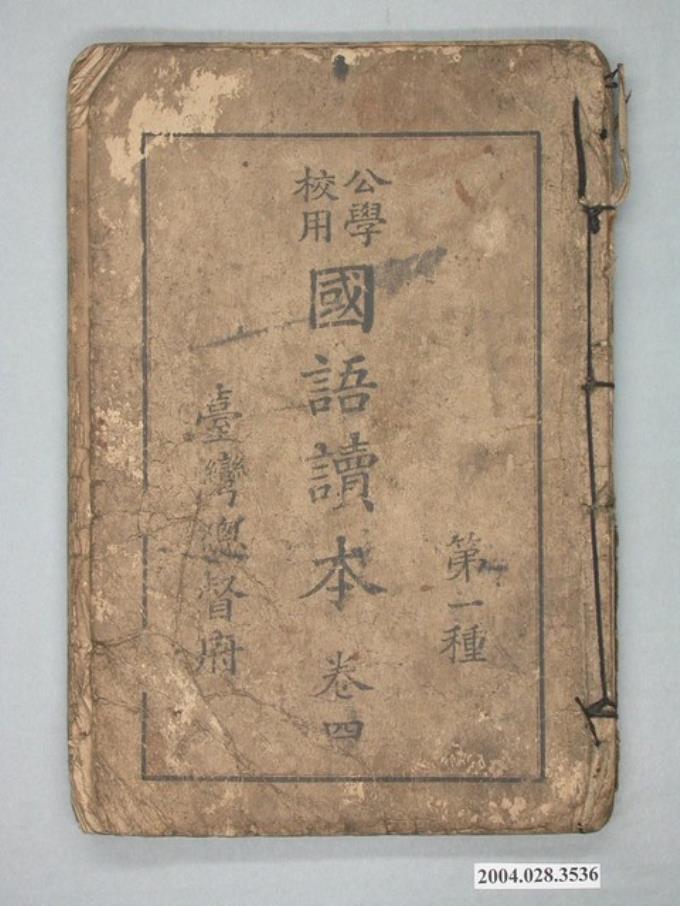 第一種
公學
校用
國語讀本 卷四
臺灣總督府
2004.028.3536